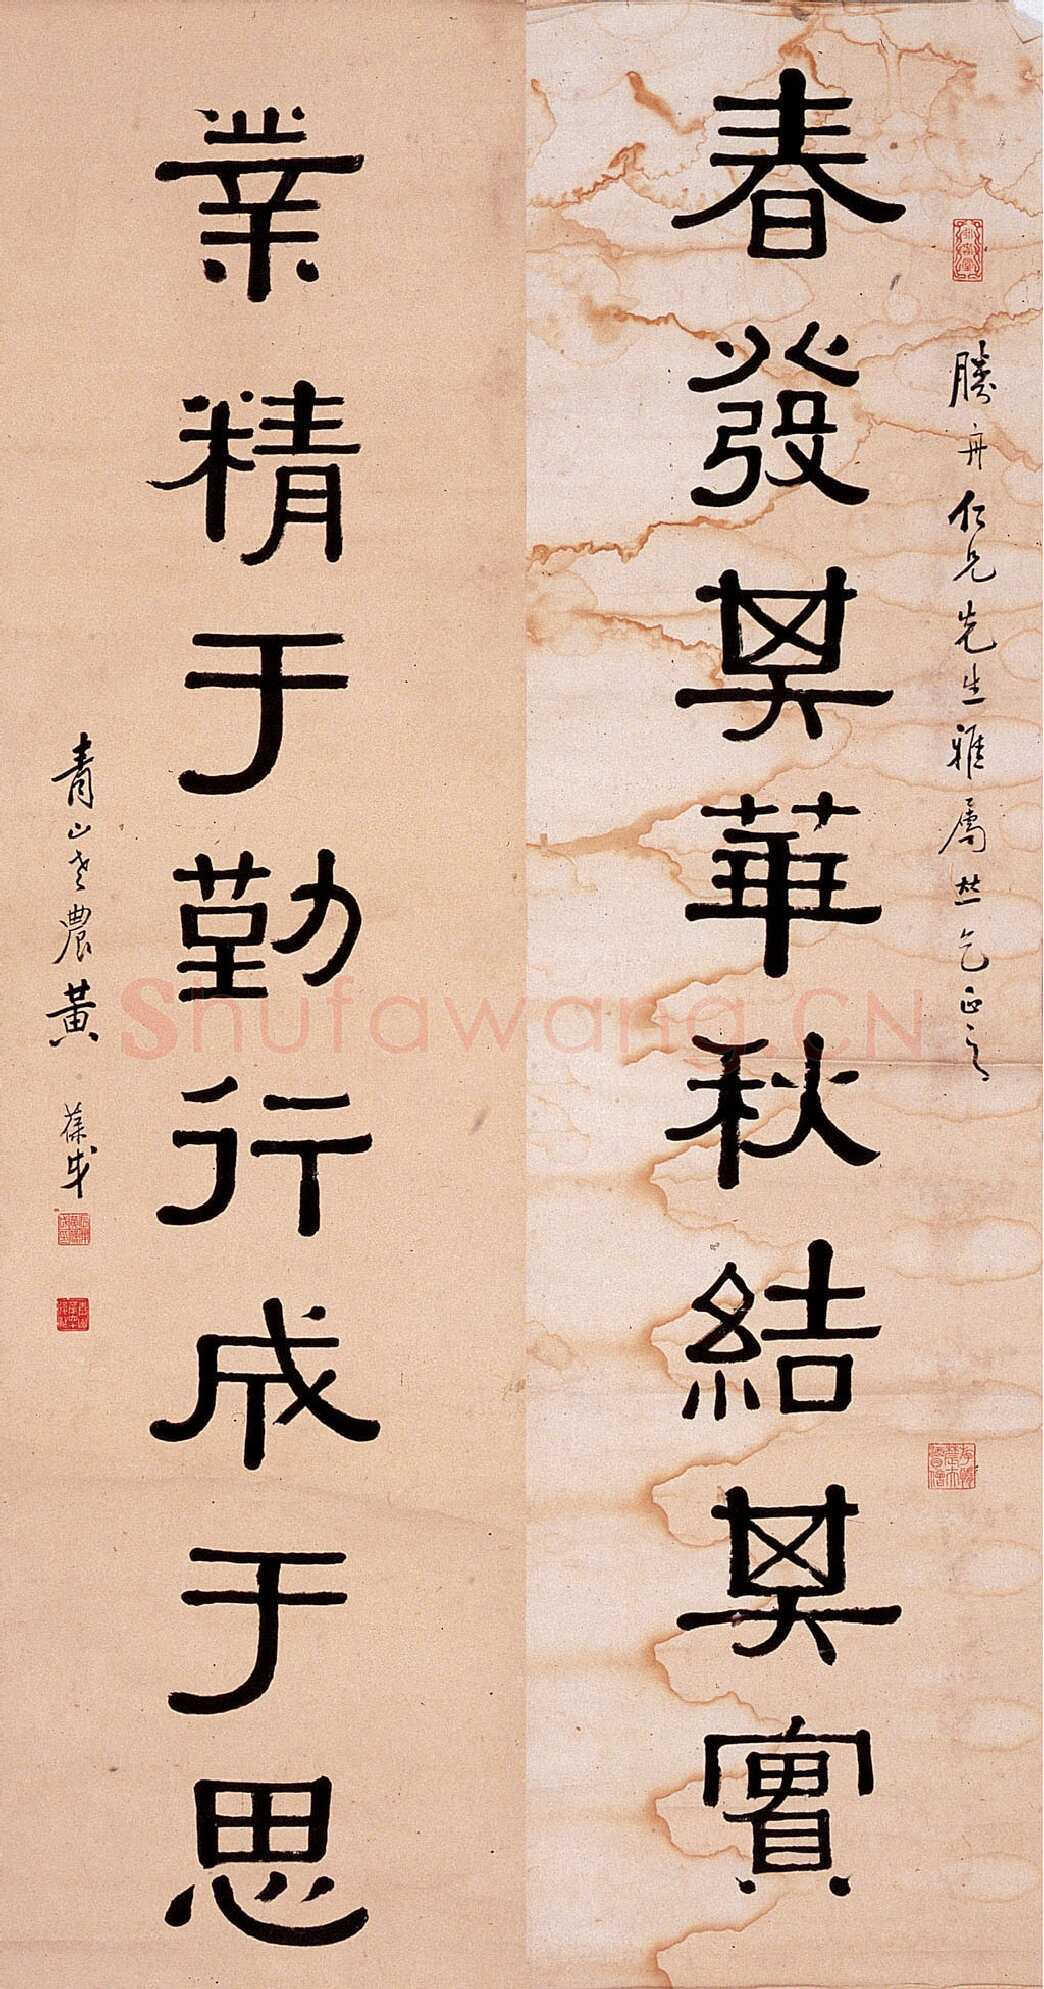 勝舟仁兄先生雅屬並乞正之
春發其華秋結其實
業精于勤行成于思
青山老農黃葆戉
Shufawang.CN